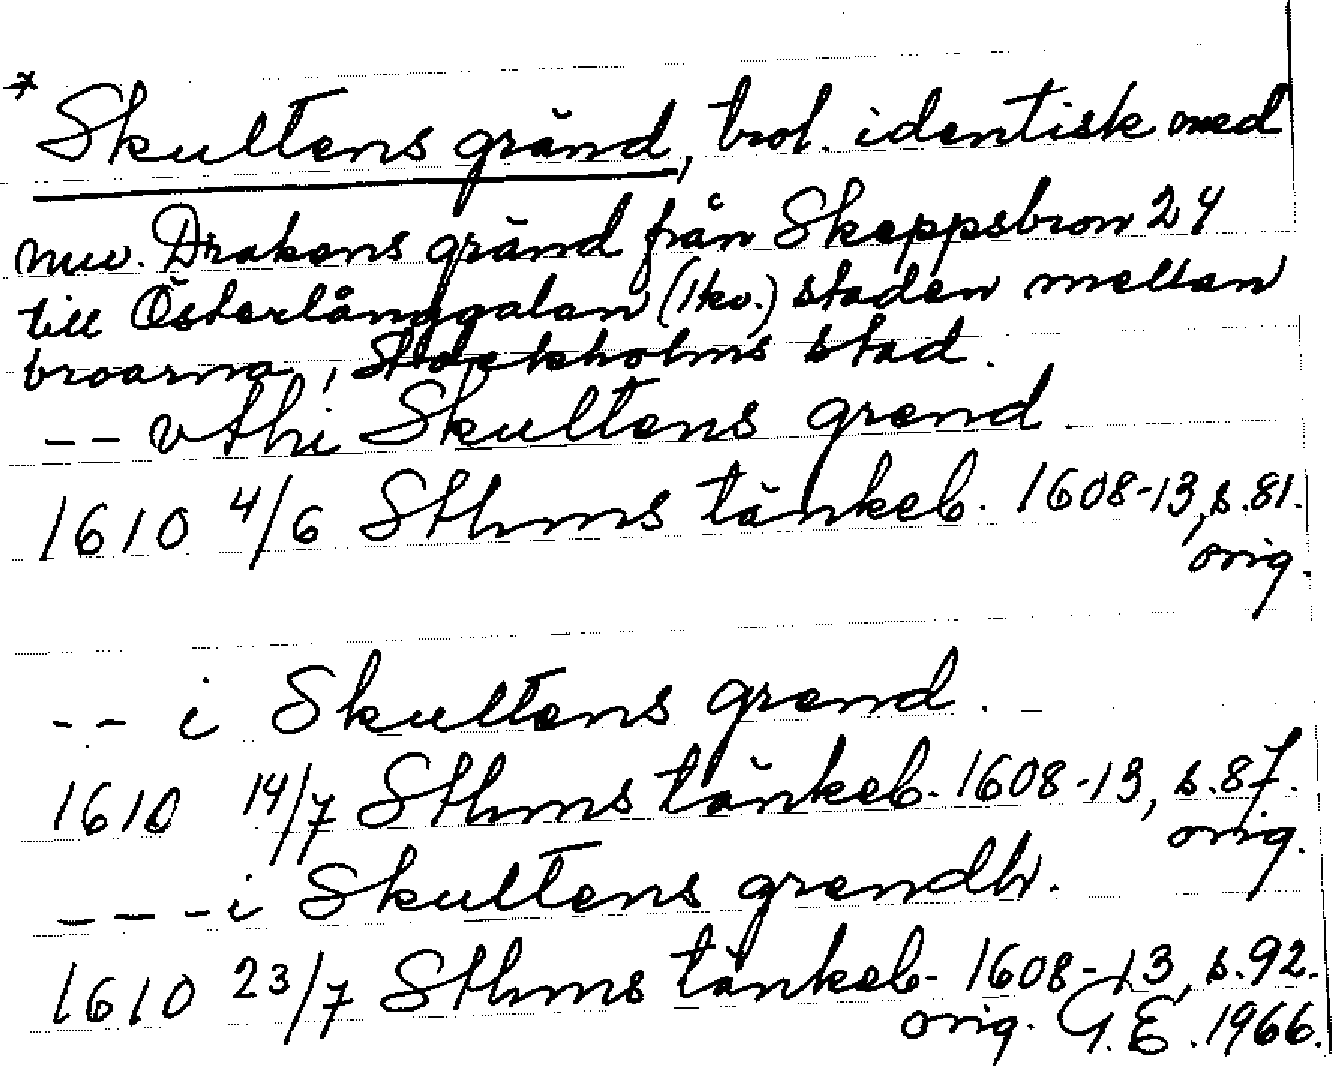 * Skultens gränd, trol. identisk med
nuv. Drakens gränd från Skeppsbron 24
till Österlånggatan (1kv.) staden mellan
broarna, Stockholms stad.
-- vthi Skultens grend
1610 4/6 Sthms tänkeb. 1608-13, s.81.
orig.
-- i Skultens grend.
1610 14/7 Sthms tänkeb. 1608-13, s.87.
orig.
--- i Skultens grendh.
1610 23/7 Sthms tänkeb. 1608-13, s.92.
orig. G.E. 1966.